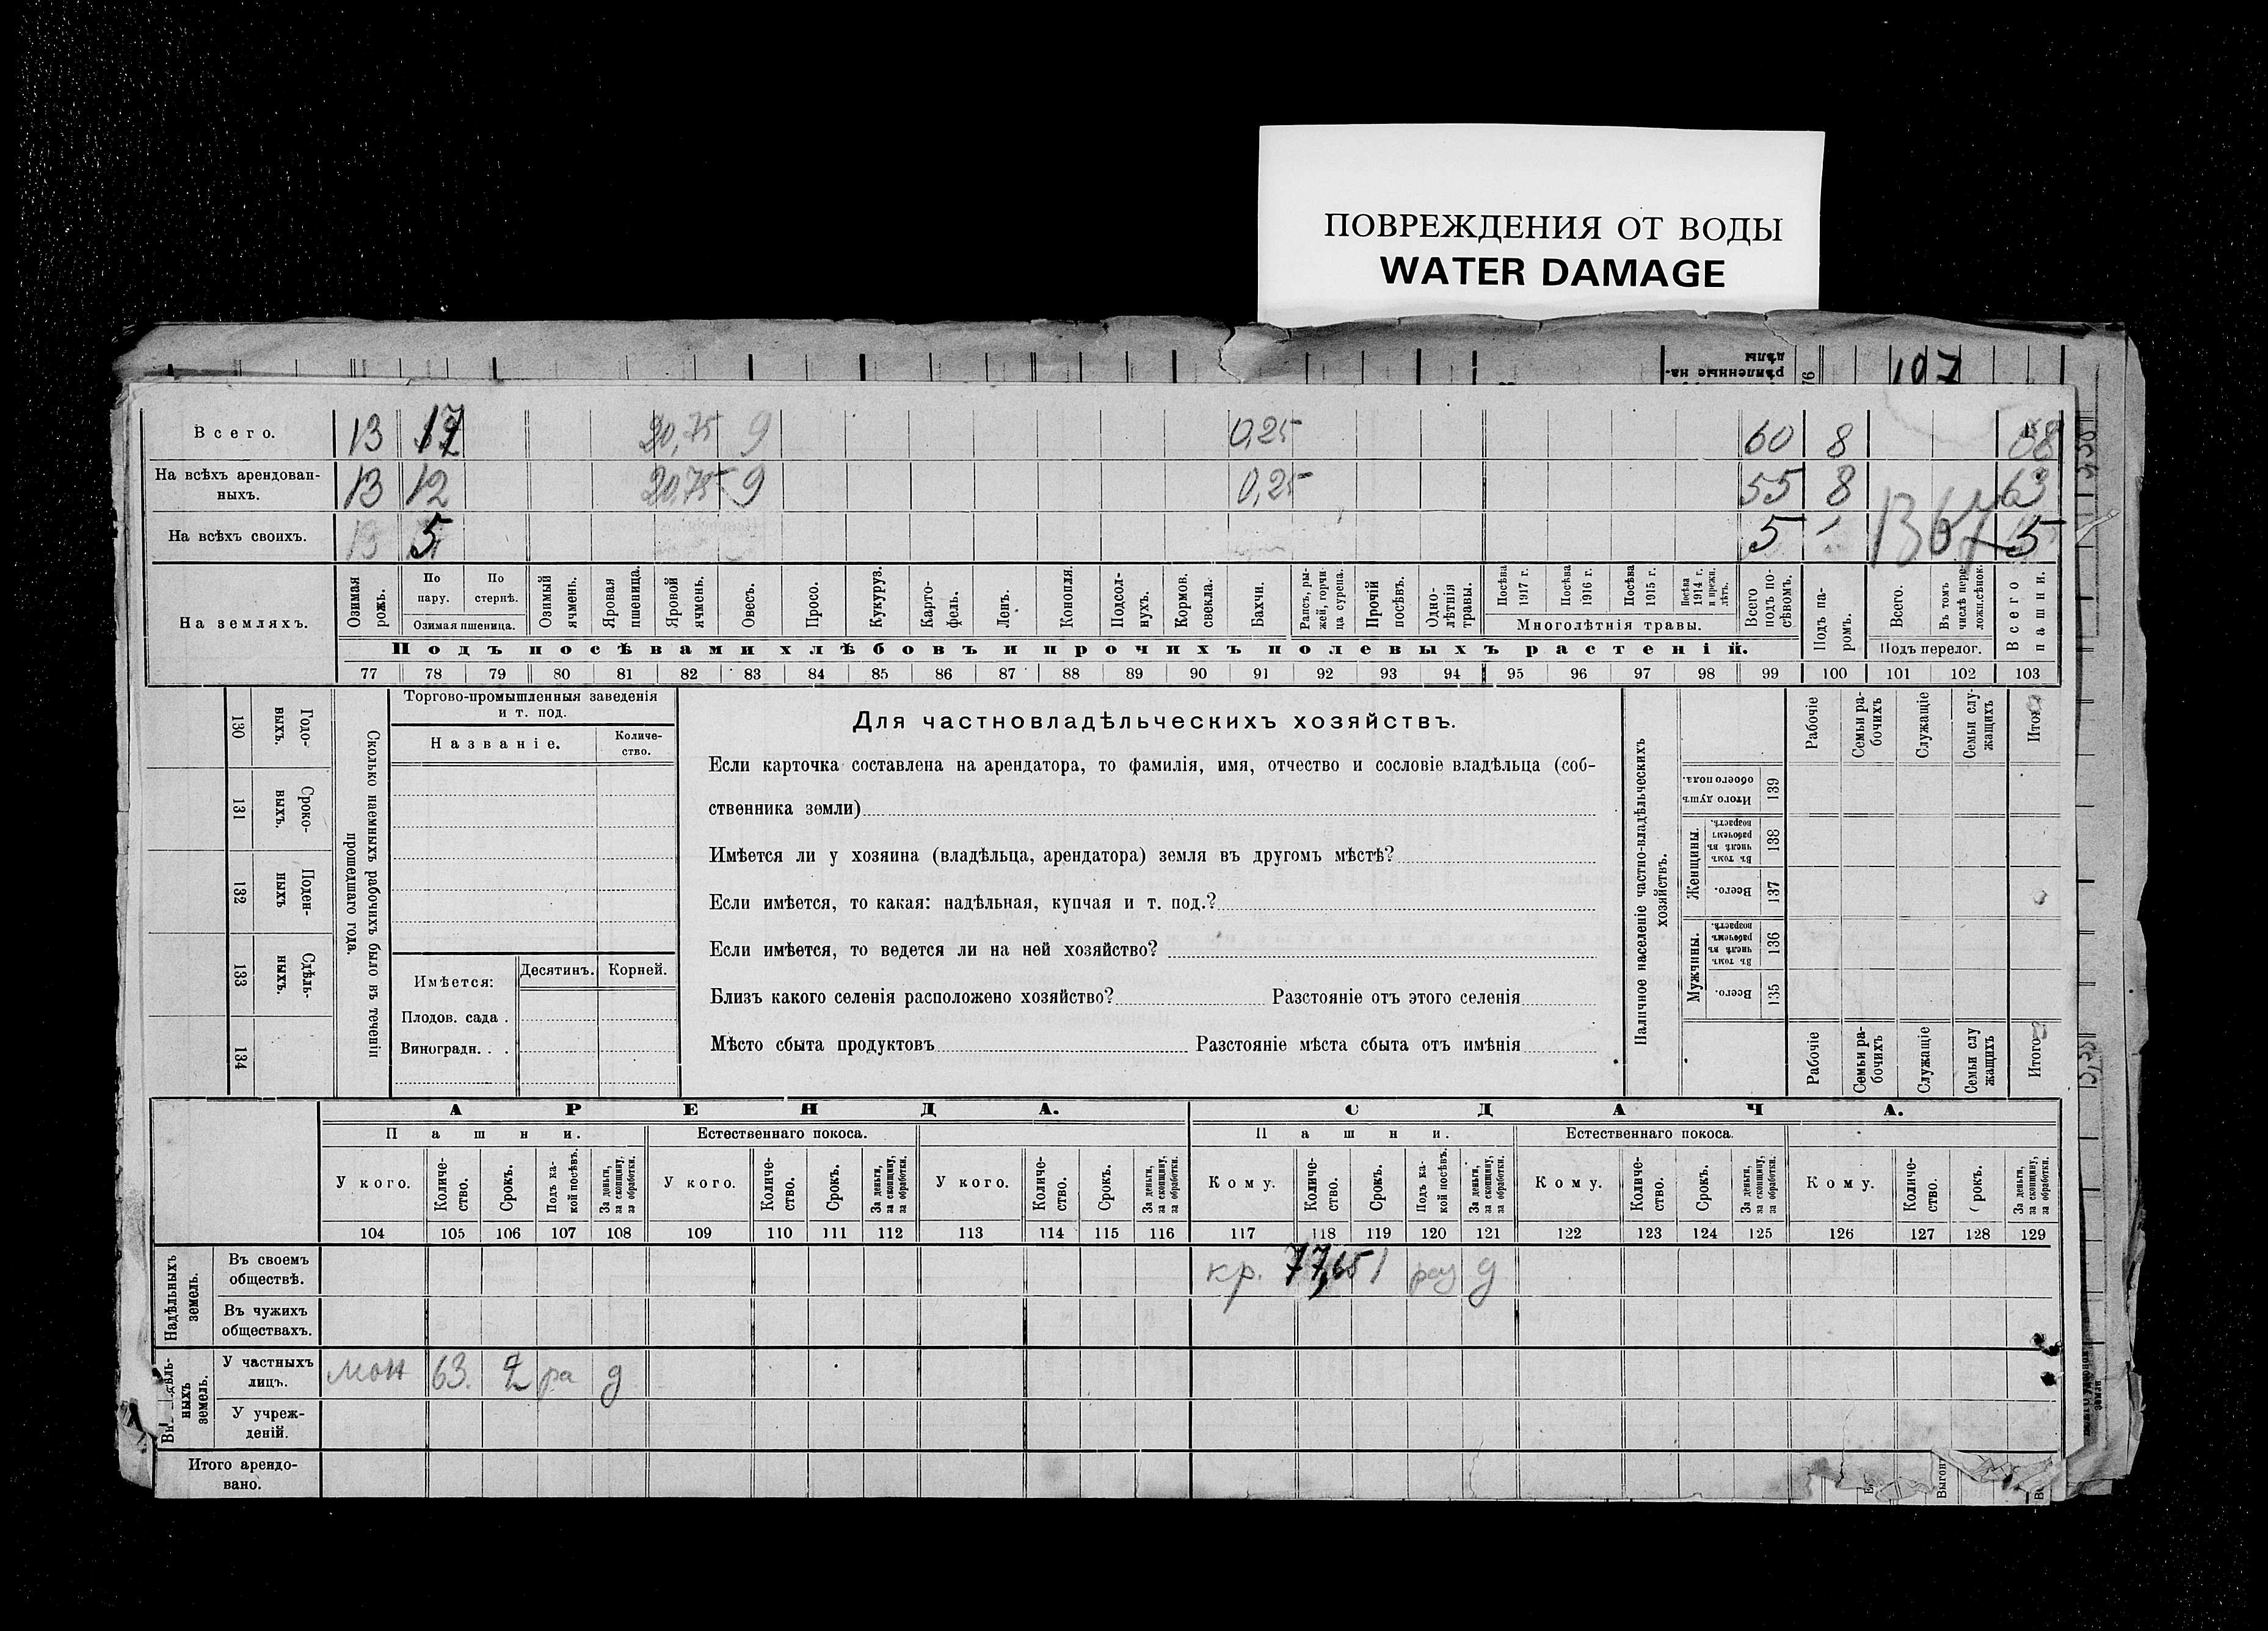 ПОВРЕЖДЕНИЯ ОТ ВОДЫ
WATER DAMAGE
рѣпленные на-
дѣлы
76
107
Всего. 13 17 20,75 9 0,25 60 8 68
На всѣхъ арендован-
ныхъ. 13 12 20,75 9 0,25 55 8 63
На всѣхъ своихъ. 13 5 5 5
1367
На земляхъ.
Озимая рожь.
По пару.
По стернѣ.
Озимая пшеница.
Озимый ячмень.
Яровая пшеница.
Яровой ячмень.
Овесъ.
Просо.
Кукуруз.
Карто-
фель.
Ленъ.
Конопля.
Подсол-
нухъ.
Кормов. свекла.
Бахчи.
Рапсъ, ры-
жей, горчи-
ца сурепа.
Прочій посѣвъ.
Одно-
лѣтнія травы.
Посѣва 1917 г.
Посѣва 1916 г.
Посѣва 1915 г.
Посѣва 1914 г. и прежн. лѣтъ.
Многолѣтнія травы.
Всего подъ по-
сѣвомъ.
Подъ па-
ромъ.
Всего.
Въ томъ числѣ пере-
ложн.сѣнок.
Подъ перелог.
Всего пашни.
Подъ посѣвами хлѣбовъ и прочихъ полевыхъ растеній.
77 78 79 80 81 82 83 84 85 86 87 88 89 90 91 92 93 94 95 96 97 98 99 100 101 102 103
130 Годо-
выхъ.
131 Сроко-
выхъ.
132 Поден-
ныхъ
133 Сдѣль-
ныхъ.
134
Сколько наемныхъ рабочихъ было въ теченіи
прошедшаго года.
Торгово-промышленныя заведенія
и т. под.
Названіе.
Количе-
ство.
Имѣется: Десятинъ. Корней.
Плодов. сада .
Виноградн. . .
Для частновладѣльческихъ хозяйствъ.
Если карточка составлена на арендатора, то фамилія, имя, отчество и сословіе владѣльца (соб-
ственника земли)
Имѣется ли у хозяина (владѣльца, арендатора) земля въ другомъ мѣстѣ?
Если имѣется, то какая: надѣльная, купчая и т. под.?
Если имѣется, то ведется ли на ней хозяйство?
Близъ какого селенія расположено хозяйство? Разстояніе отъ этого селенія
Мѣсто сбыта продуктовъ Разстояніе мѣста сбыта отъ имѣнія
Наличное населеніе частно-владѣльческихъ
хозяйствъ.
Рабочіе
Семьи ра-
бочихъ
Служащіе
Семьи слу-
жащихъ
Итого
Итого душ обоего пола. 139
Женщины.
Въ томъ числѣ въ рабочемъ возрастѣ. 138
Всего. 137
Мужчины.
Въ томъ числѣ въ рабочемъ возрастѣ. 136
Всего. 135
Рабочіе
Семьи ра-
бочихъ
Служащіе
Семьи слу
жащихъ
Итого
АРЕНДА. СДАЧА.
Пашни. Естественнаго покоса. Пашни. Естественнаго покоса.
У кого.
Количе-
ство.
Срокъ.
Подъ ка-
кой посѣвъ.
За деньги, за скопщину, за обработки.
У кого.
Количе-
ство.
Срокъ.
За деньги, за скопщину, за обработки.
У кого.
Количе-
ство.
Срокъ.
За деньги, за скопщину, за обработки.
Кому.
Количе-
ство.
Срокъ.
Подъ ка-
кой посѣвъ.
За деньги, за скопщину, за обработки.
Кому.
Количе-
ство.
Срокъ.
За деньги, за скопщину, за обработки.
Кому.
Количе-
ство.
рокъ.
За деньги, за скопщину, за обработки.
104 105 106 107 108 109 110 111 112 113 114 115 116 117 118 119 120 121 122 123 124 125 126 127 128 129
Надѣльныхъ
земель.
Въ своемъ
обществѣ. кр. 77,65 1 раз д
Въ чужихъ
обществахъ.
ныхъ
земель.
У частныхъ
лицъ. мон 63. 2 ра д
У учреж-
деній.
Итого арендо-
вано.
Выгонъ